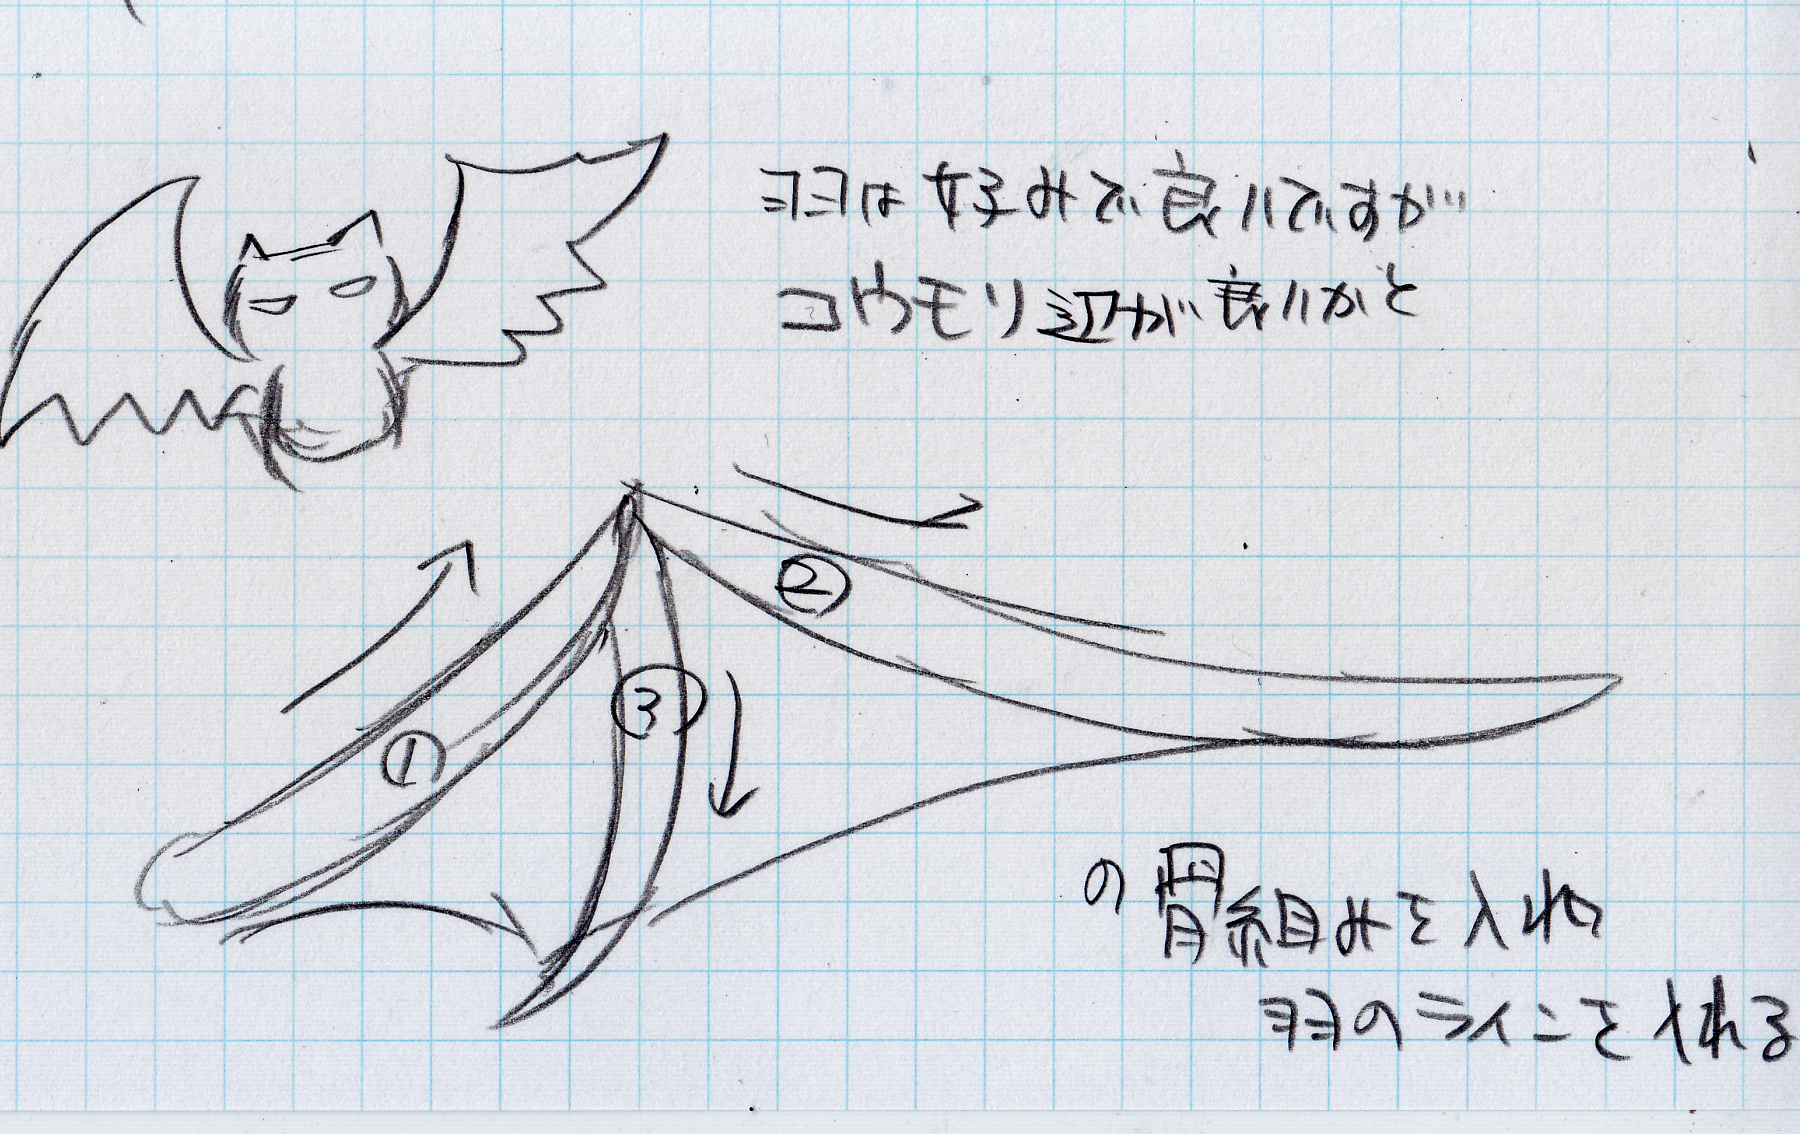 羽は好みで良いですが
コウモリ辺が良いかと
②
③
①
の骨組みを入れ
羽のラインを入れる